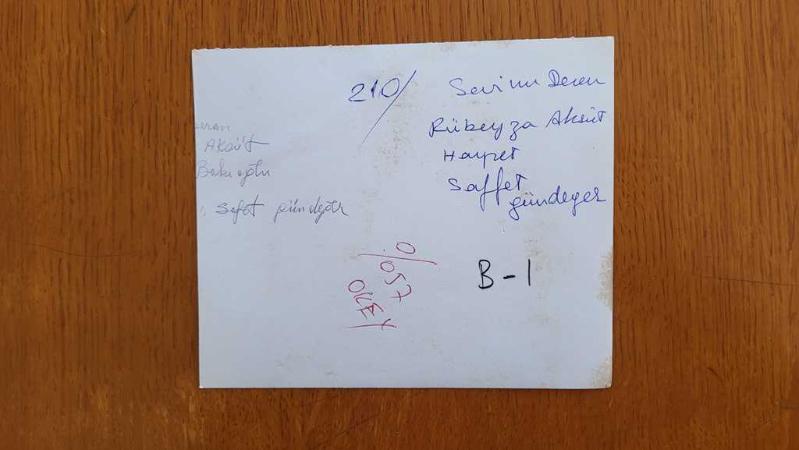 210/
Sevim Deren
Rübeyza Aksüt
Hayret
Saffet
gündeger
eran
Aksüt
Safet gündeğer
0/057
OKEY
B-1